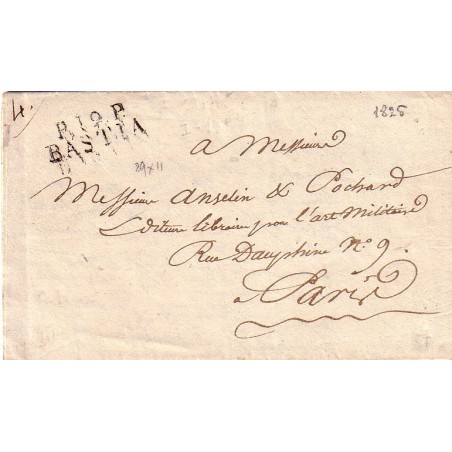 P.19.P.
BASTIA
1825
29 x 11
a Messieurs
Messieurs Anselin & Pochard
Editeur libraire pour l'art Militaire
Rue Dauphine N° 9.
a Paris